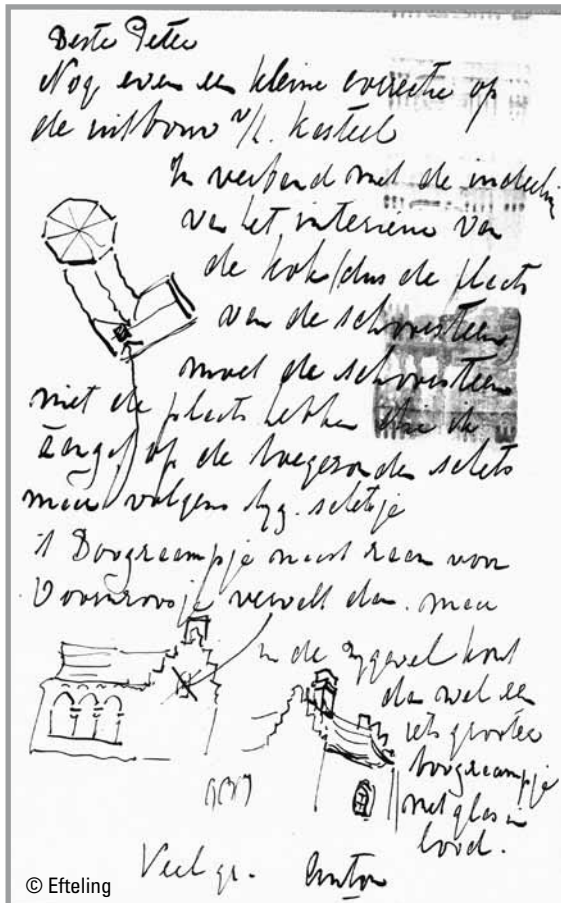 Beste Peter
Nog even een kleine correctie op
de uitbouw v/h. kasteel
In verband met de indeling
van het interieur van
de kok (dus de plaats
van de schoorsteen)
moet de schoorsteen
niet de plaats hebben die ik
aangaf op de toegezonden schets
maar volgens bijg. schetsje
't Boograampje naast raam voor
Doornroosje vervalt dan. maar
in de zijgevel komt
dan wel een
iets groter
boograampje
met glas in
lood.
Veel gr. Anton
© Efteling